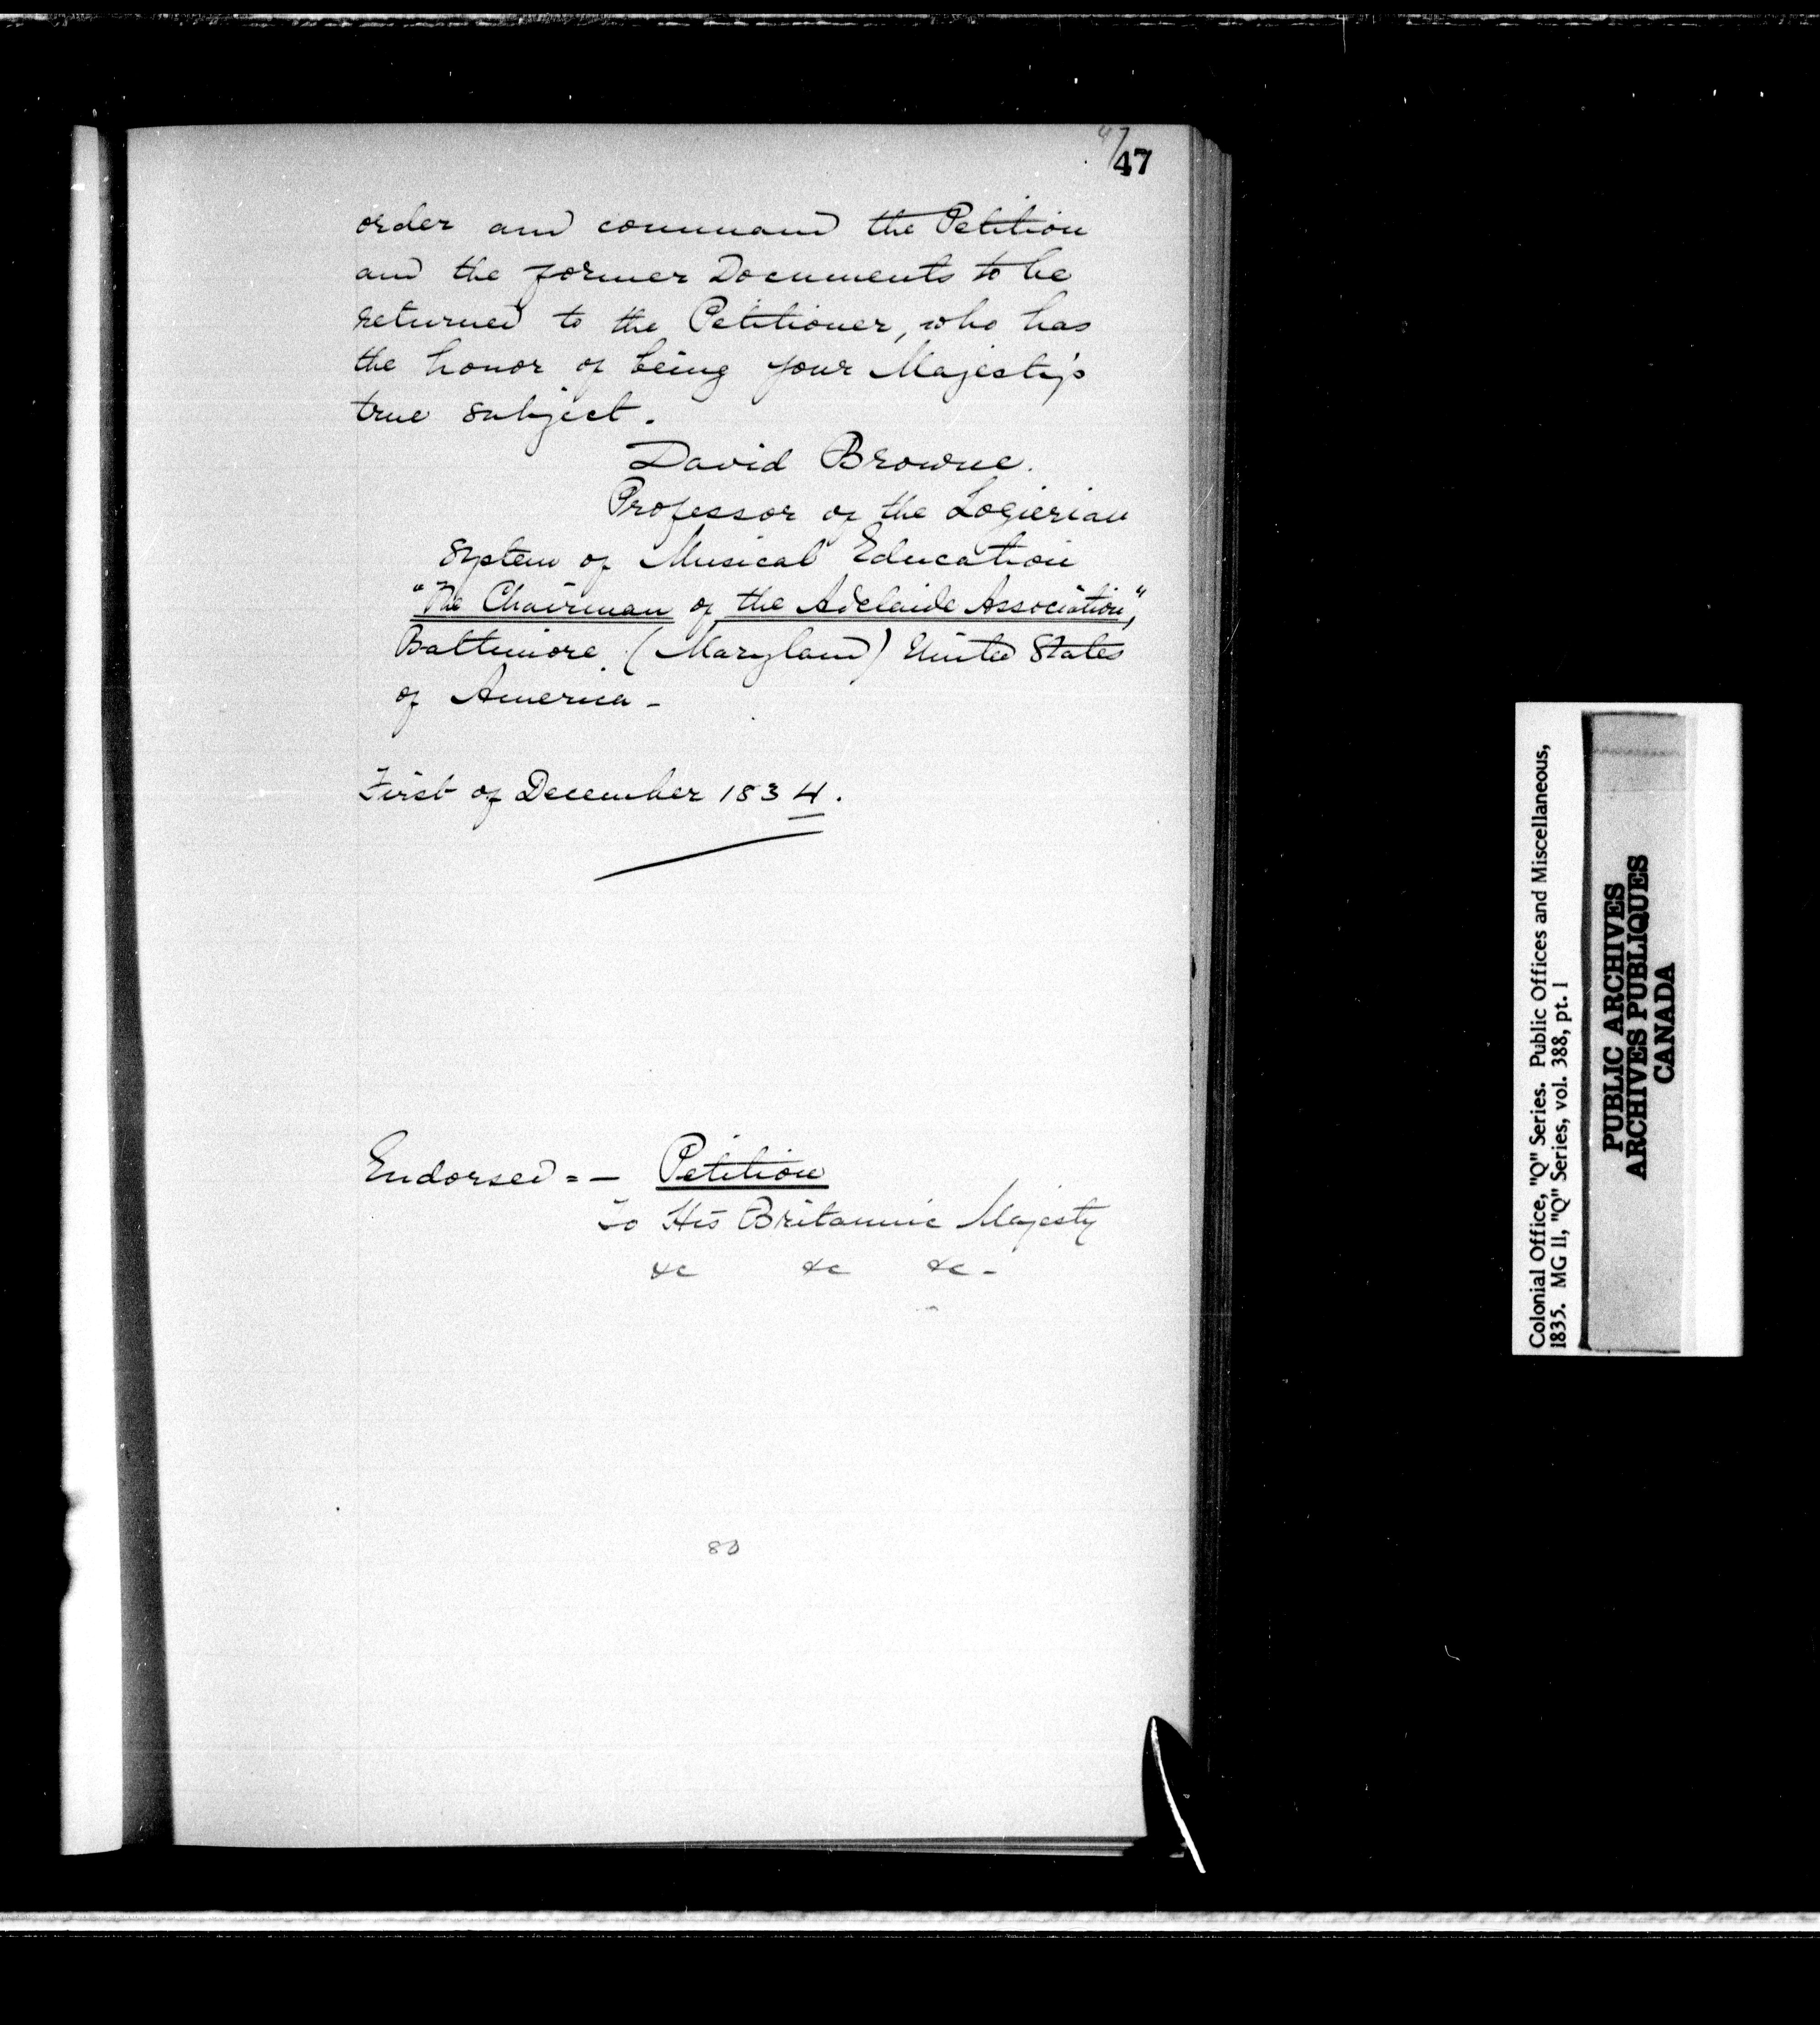 47
47
order and command the Petition
and the former Documents to be
returned to the Petitioner, who has
the honor of being your Majesty's
true subject.
David Browne.
Professor of the Logierian
System of Musical Education
"The Chairman of the Adelaide Association",
Baltimore. (Maryland) United States
of America -
First of December 1834.
Endorsed = - Petition
To His Britannic Majesty
&c &c &c -
80
Colonial Office, "Q" Series. Public Offices and Miscellaneous,
1835. MG 11, "Q" Series, vol. 388, pt. 1
PUBLIC ARCHIVES
ARCHIVES PUBLIQUES
CANADA